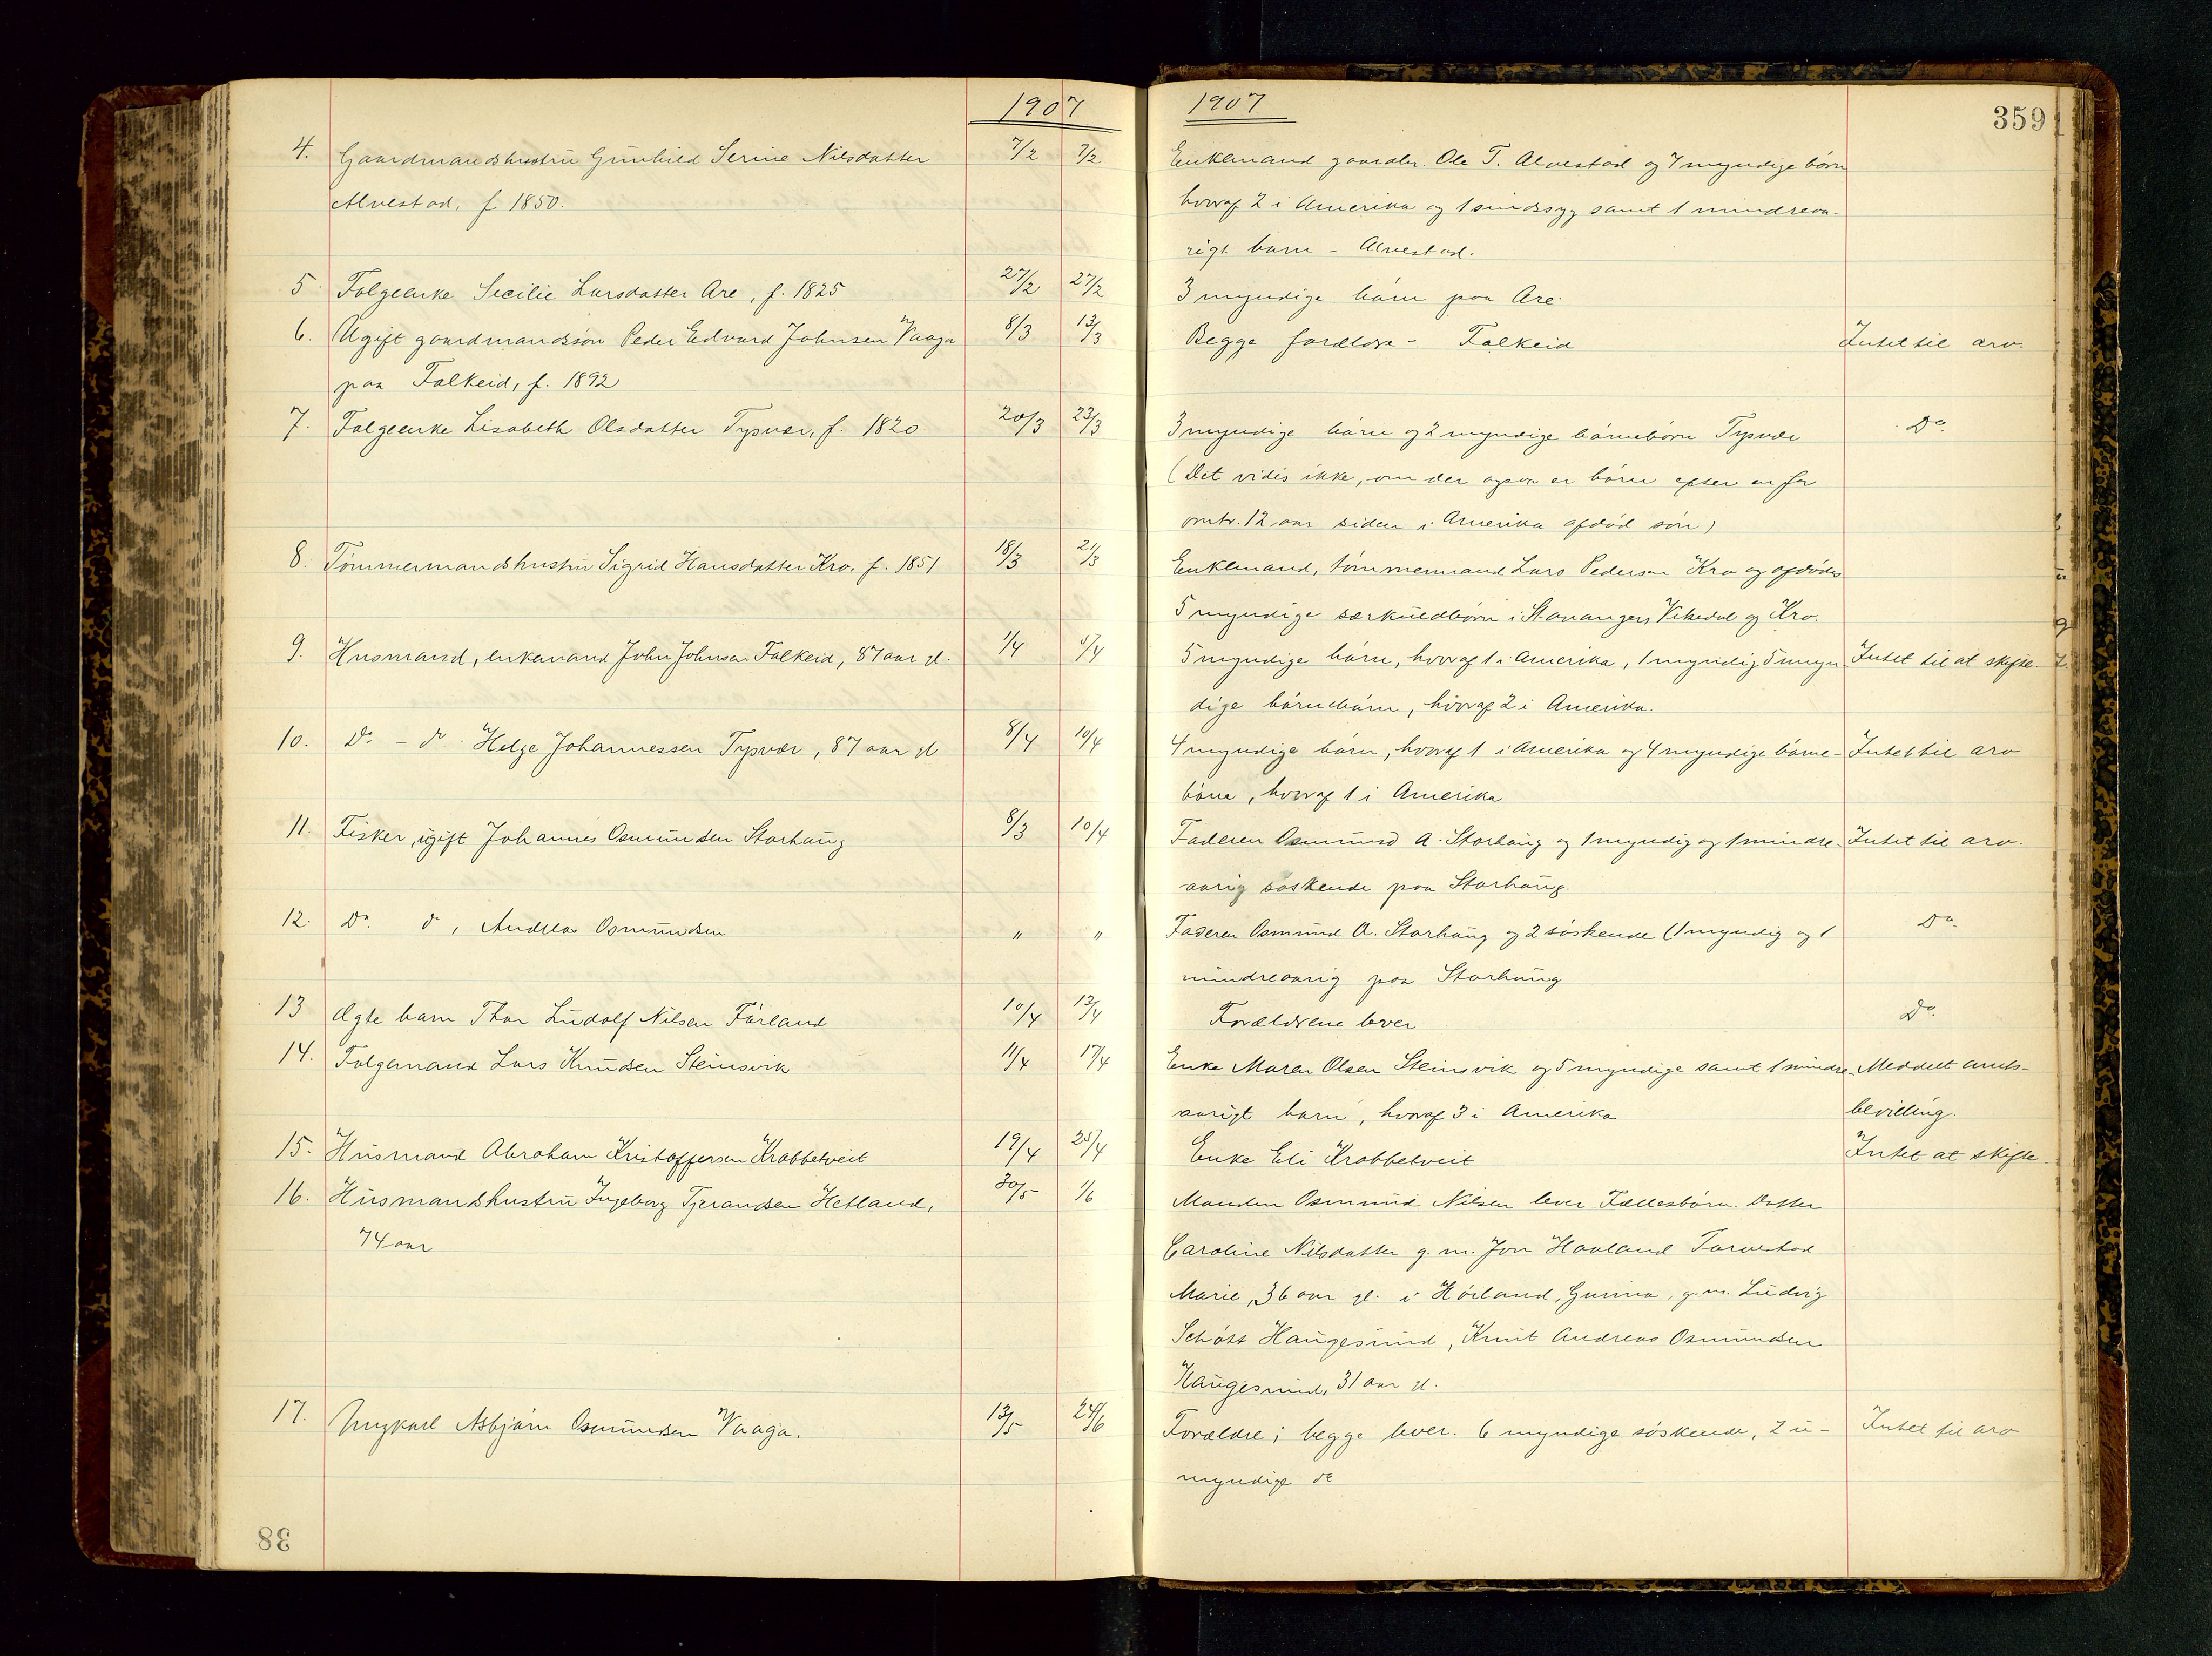 1907
1907
359
4. Gaardmandshustru Gunhild Serine Nilsdatter 7/2 7/2 Enkemand gaardbr. Ole T. Alvestad og 7 myndige børn
Alvestad, f 1850. hvoraf 2 i Amerika og 1 sindssyg samt 1 mindreaa-
rigt barn - Alvestad.
5 Folgeenke Secilie Larsdatter Are, f. 1825 27/2 27/2 3 myndige børn paa Are.
6. Ugift gaardmandssøn Peder Edvard Johnsen Vaaga 8/3 13/3 Begge forældre - Falkeid Intet til arv.
paa Falkeid, f. 1892
7. Folgeenke Lisabeth Olsdatter Tysvær, f. 1820 20/3 23/3 3 myndige børn og 2 myndige børnebørn Tysvær Do.
(Det vides ikke, om der ogsaa er børn efter en for
omtr. 12 aar siden i Amerika afdød søn)
8. Tømmermandshustru Sigrid Hansdatter Kro. f. 1851 18/3 21/3 Enkemand, tømmermand Lars Pedersen Kro og afdødes
5 myndige særkuldbørn i Stavanger, Vikedal og Kro.
9. Husmand, enkemand John Johnsen Falkeid, 87 aar gl. 1/4 5/4 5 myndige børn, hvoraf 1 i Amerika, 1 myndig 5 myn Intet til at skifte
dige børnebørn, hvoraf 2 i Amerika.
10. Do. - do. Helge Johannessen Tysvær, 87 aar gl 8/4 10/4 4 myndige børn, hvoraf 1 i Amerika og 4 myndige børne- Intet til arv
børn, hvoraf 1 i Amerika
11. Fisker, ugift Johannes Osmundsen Storhaug 8/3 10/4 Faderen Osmund A. Storhaug og 1 myndig og 1 mindre- Intet til arv.
aarig søskende paa Storhaug.
12. Do. do, Andreas Osmundsen " " Faderen Osmund A. Storhaug og 2 søskende (1 myndig og 1 Do.
mindreaarig paa Storhaug
13 Ægte barn Thor Ludolf Nilsen Førland 10/4 13/4 Forældrene lever Do.
14. Folgemand Lars Knudsen Steinsvik 11/4 17/4 Enke Maren Olsen Steinsvik og 5 myndige samt 1 mindre- Meddelt amts-
aarigt barn, hvoraf 3 i Amerika bevilling.
15. Husmand Abraham Kristoffersen Krabbetveit 19/4 25/4 Enke Eli Krabbetveit Intet at skifte
16. Husmandshustru Ingeborg Tjerandsen Hetland, 30/5 1/6 Manden Osmund Nilsen lever Fællesbørn. Datter
74 aar Caroline Nilsdatter g. m. Jon Haaland Torvestad
Marie, 36 aar gl. i Høiland, Gurina, g. m. Ludvig
Schøtt Haugesund, Knut Andreas Osmundsen
Haugesund, 31 aar gl.
17. Ungkarl Asbjørn Osmundsen Vaaga. 13/5 24/6 Forældre; begge lever. 6 myndige søskende, 2 u- Intet til arv
myndige do
38